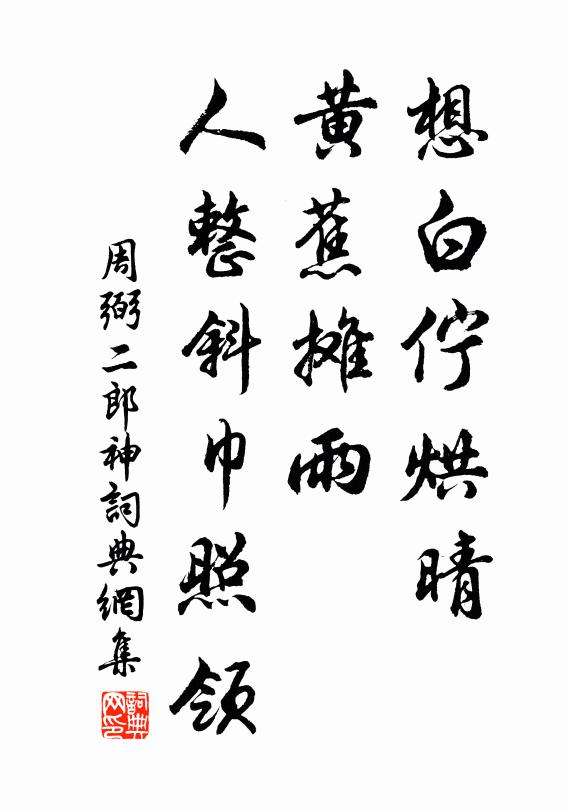 想白佇烘晴
黄蕉攤雨
人整斜巾照領
周弼二郎神詞典網集
詞典網印